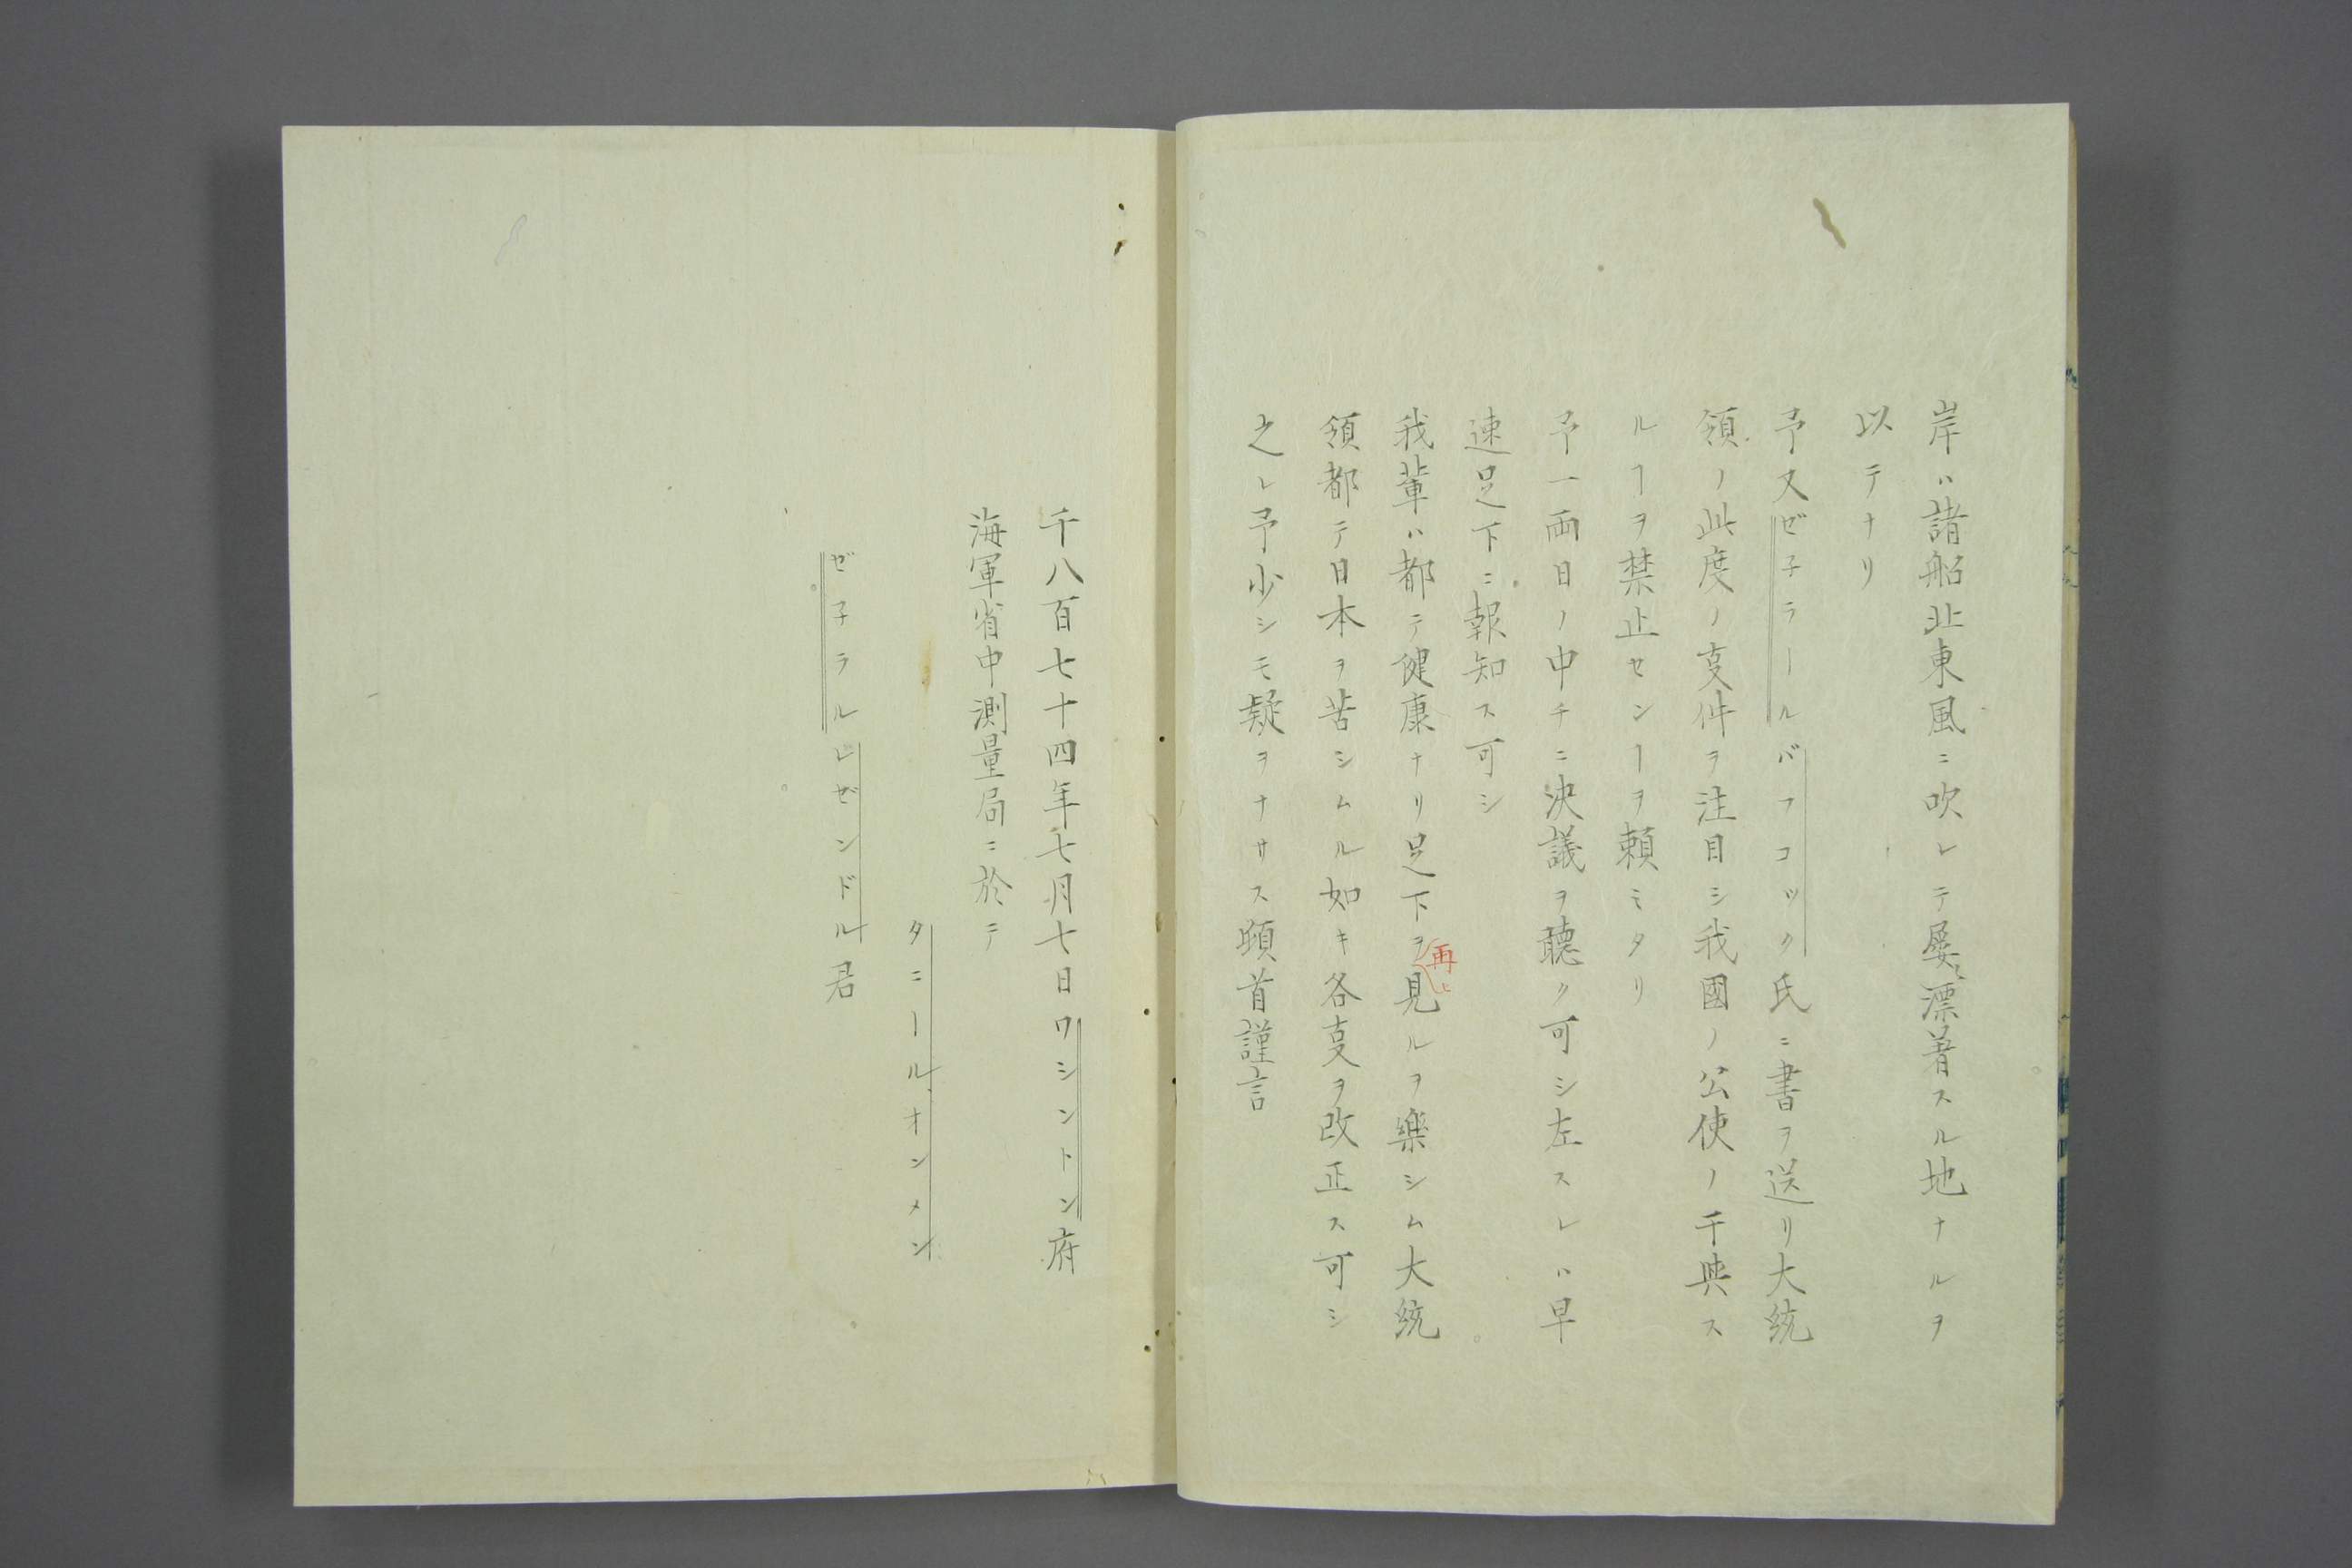 岸ハ諸船北東風ニ吹レテ屡〻漂著スル地ナルヲ
以テナリ
予又ゼ子ラールバフコック氏ニ書ヲ送リ大統
領ノ此度ノ㕝件ヲ注目シ我國ノ公使ノ干與ス
ルヿヲ禁止センヿヲ頼ミタリ
予一両日ノ中チニ決議ヲ聽ク可シ左スレハ早
速足下ニ報知ス可シ
我輩ハ都テ健康ナリ足下ヲ再ヒ見ルヲ樂シム大統
領都テ日本ヲ苦シムル如キ各㕝ヲ改正ス可シ
之レ予少シモ疑ヲナサス頓首謹言
千八百七十四年七月七日ワシントン府
海軍省中測量局ニ於テ
タニールオンメン
ゼ子ラルレゼンドル君